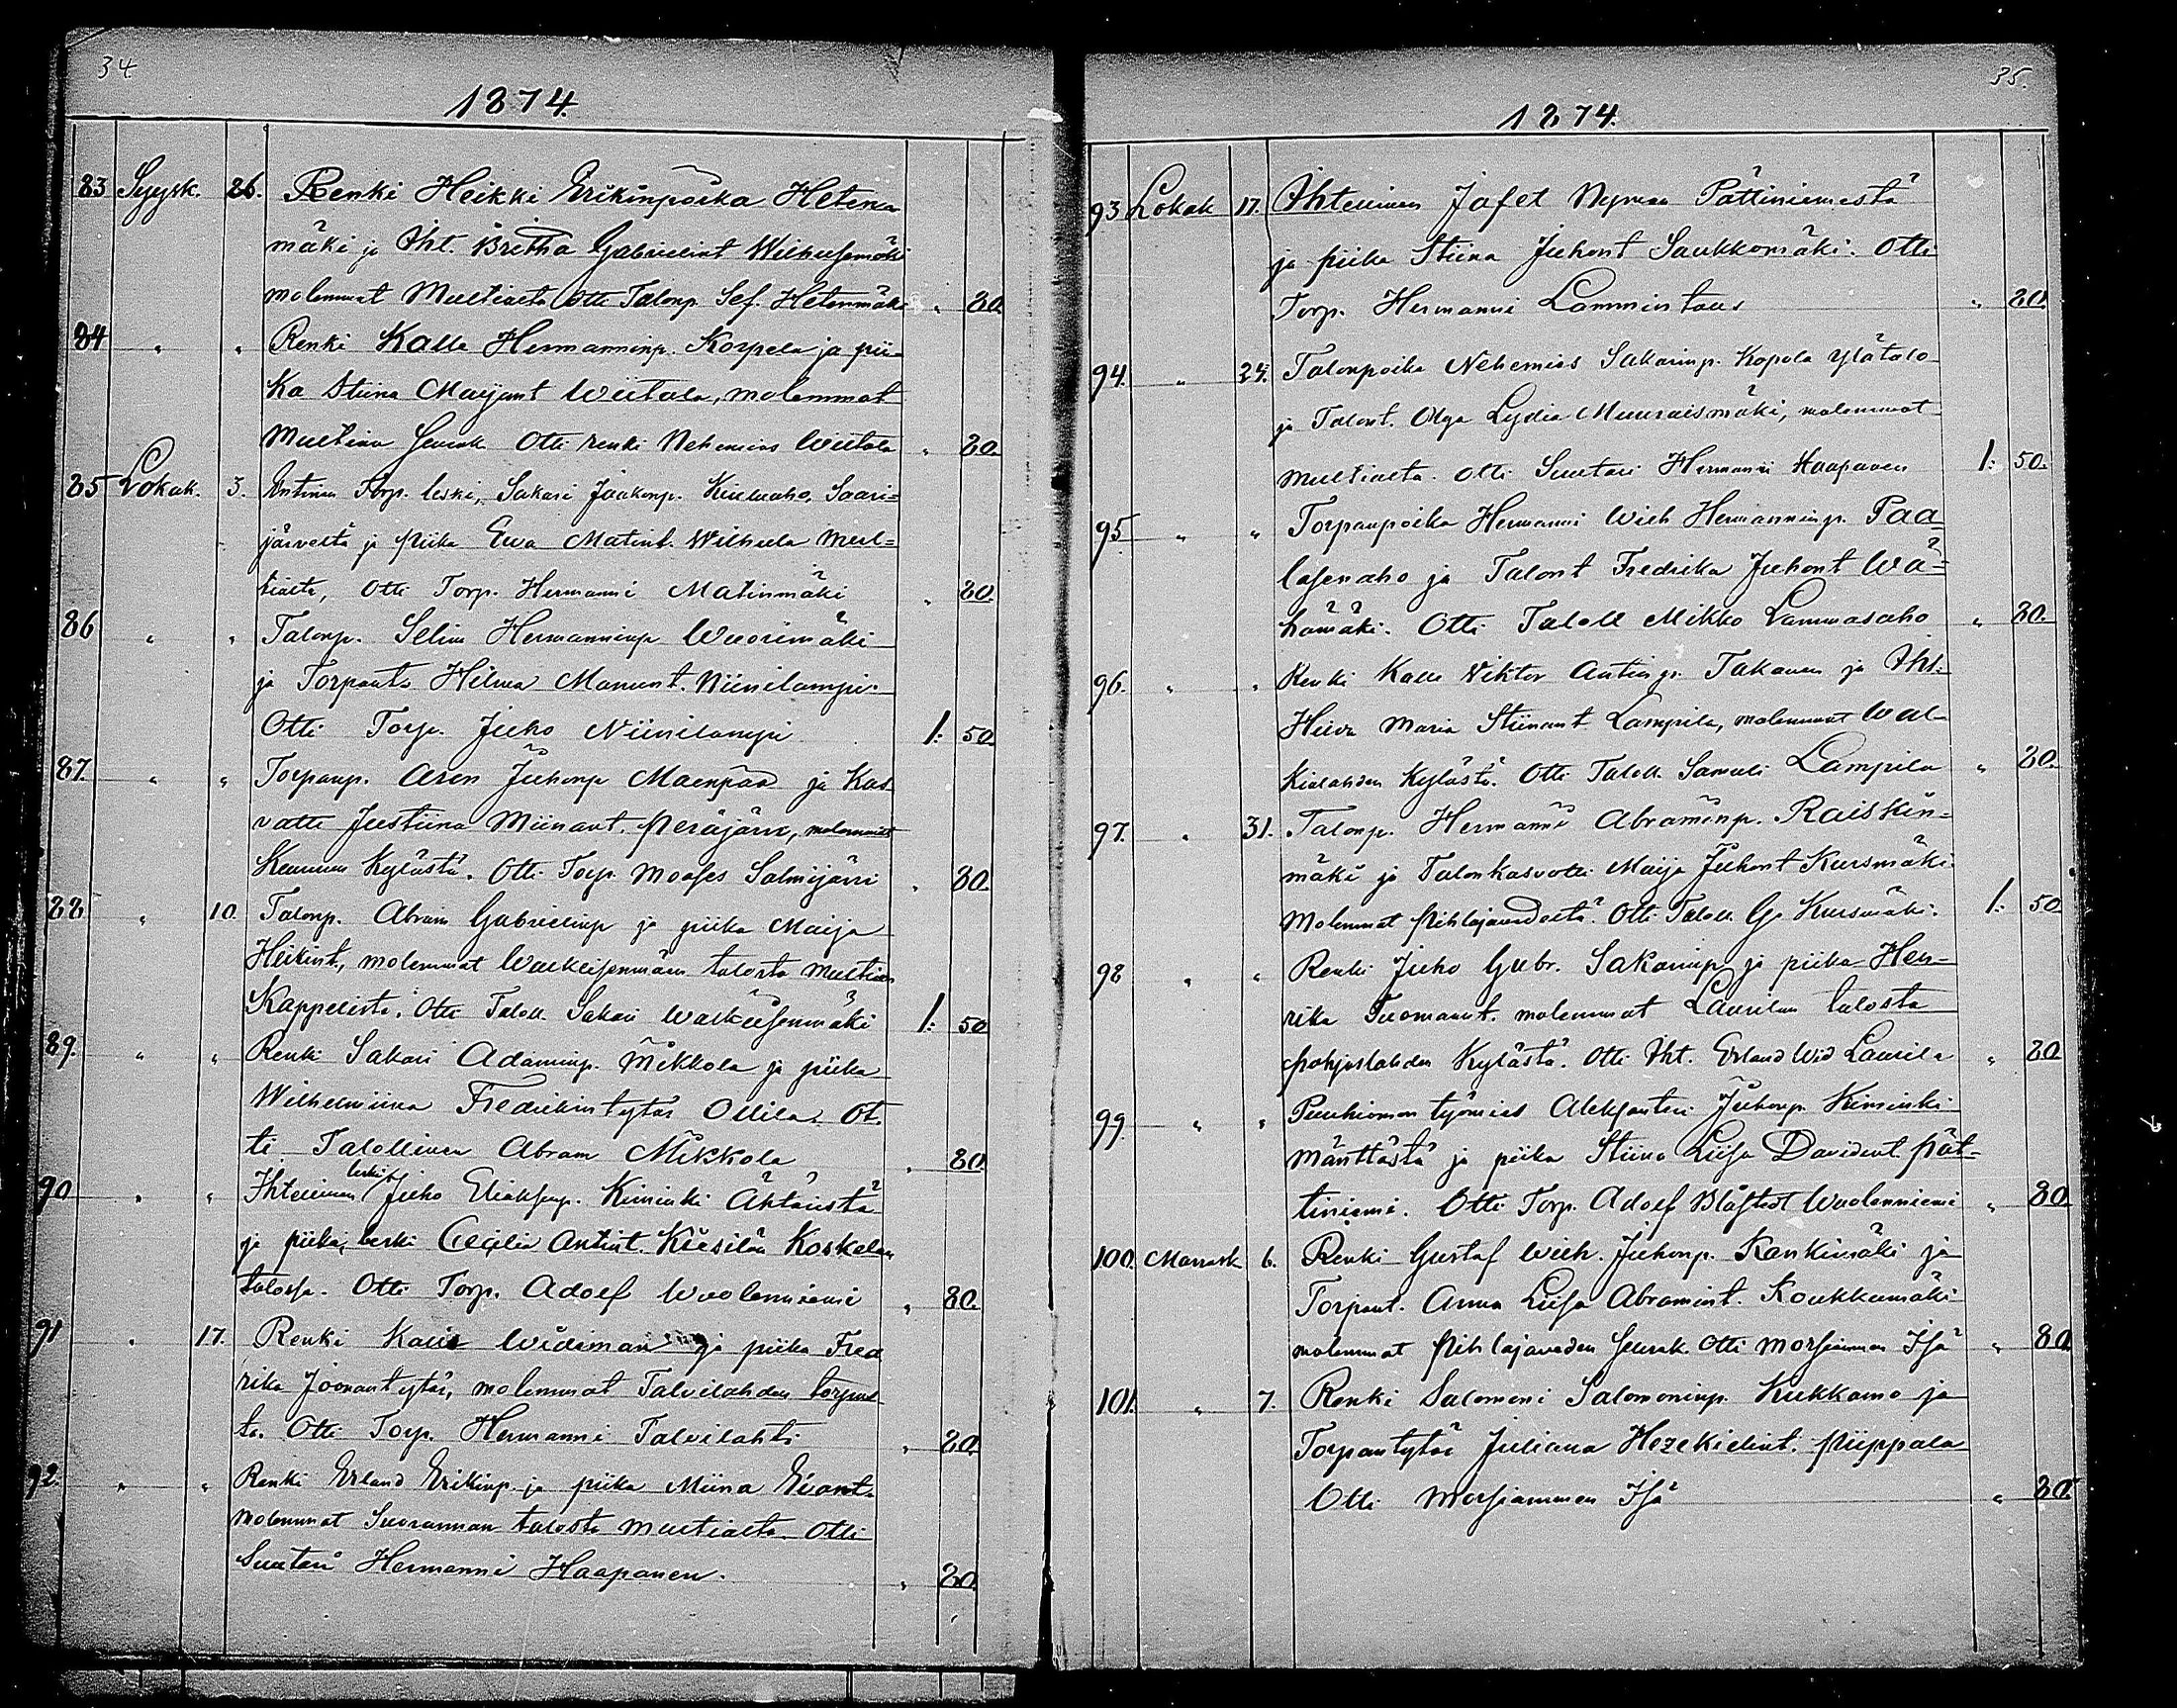 34
1874.
83 Syysk. 26. Renki Heikki Erikinpoika Hetenmäki
mäki ja Iht. Britha Gabrielint Wilhusenmäki
molemmat Multialta Otti Talonp. Sef. Hetenmäki " 80.
84 " " Renki Kalle Hermanninp. Korpela ja pii-
ka Stiina Maijant Wiitala, molemmat
Multian Seurak Otti renki Nehemias Wiitala " 80.
85 Lokak. 3. Entinen Torp. leski, Sakari Jaakonp. Kiuluaho, Saari=
järveltä ja piika Ewa Matint. Wilhula Mul=
tialta, Otti Torp. Hermanni Matinmäki " 80.
86 " " Talonp. Selim Hermanninp Wuorimäki
ja Torpant. Hilma Manunt. Niinilampi.
Otti Torp. Juho Niinilampi 1: 50.
87. " " Torpanp. Aron Juhonp Mäenpää ja Kas
vatti Justiina Miinant. Peräjärvi, molemmat
Keuruun Kylästä. Otti Torp. Moses Salmijärvi " 80.
88 " 10. Talonp. Abram Gabrielinp ja piika Maija
Heikint., molemmat Waekeisenmäen talosta Multian
Kappelista. Otti Taloll. Sakari Walkeisenmäki 1: 50
89. " " Renki Sakari Adaminp. Mikkola ja piika
Wilhelmiina Fredrikintytär Ollila. Ot.
ti Talollinen Abram Mikkola " 80.
90 " " Ihtellinen leski Juho Eliaksenp. Kiminki Ähtäristä
ja piika, leski Cecilia Antint. Kiesilän Koskelan
talossa. Otti Torp. Adolf Wuolenniemi " 80.
91 " 17. Renki Kalle Widiman ja piika Fred
rika Joonantytär, molemmat Talvilahden torpas
ta. Otti Torp. Hermanni Talvilahti " 80.
92. " " Renki Erland Erikinp. ja piika Miina Eeant.
molemmat Suorannan talosta Multialta. Otti
Suutari Hermanni Haapanen. " 80.
35.
1874.
93 Lokak 17. Ihtellinen Jafet Nyman Pättiniemestä
ja piika Stiina Juhont Saukkomäki. Otti
Torp. Hermanni Lammintaus " 80.
94. " 24. Talonpoika Nehemias Sakarinp. Kopola Ylätalo
ja Talont. Olga Lydia Muuraismäki, molemmat
Multialta. Otti Suutari Hermanni Haapanen 1: 50.
95 " " Torpanpoika Hermanni Wilh Hermanninp. Paa-
lasenaho ja Talont Fredrika Juhont Wä=
hämäki. Otti Taloll Mikko Lammasaho " 80.
96. " " Renki Kalle Viktor Antinp. Takanen ja Iht.
Hilda Maria Stiinant. Lampila, molemmat Wal-
kialahden Kylästä. Otti Taloll. Samuli Lampila " 80.
97. " 31. Talonp. Hermanni Abraminp. Raiskin=
mäki ja Talonkasvatti Maija Juhont Kursmäki
Molemmat Pihlajavedestä. Otti Taloll. G. Kursmäki. 1: 50
98 " " Renki Juho Gabr. Sakarinp ja piika Hen-
rika Tuomaant. molemmat Laurilan talosta
Pohjoslahden Kylästä. Otti Iht. Erland Wid Laurila " 80
99. " " Puuhioman työmies Aleksanteri Juhonp. Kiminki
Mänttästä ja piika Stiina Liisa Davidint. Pät-
tiniemi. Otti Torp. Adolf Blåfield Wuolenniemi " 80.
100. Marrask 6. Renki Gustaf Wilh. Juhonp. Kankimäki ja
Torpant. Anna Liisa Abramint. Koukkumäki
molemmat Pihlajaveden Seurak. Otti Morsiammen Isä " 80.
101. " 7. Renki Salomoni Salomoninp. Kukkamo ja
Torpantytär Juliana Hezekielint. Piippala
Otti Morsiammen Isä " 80.